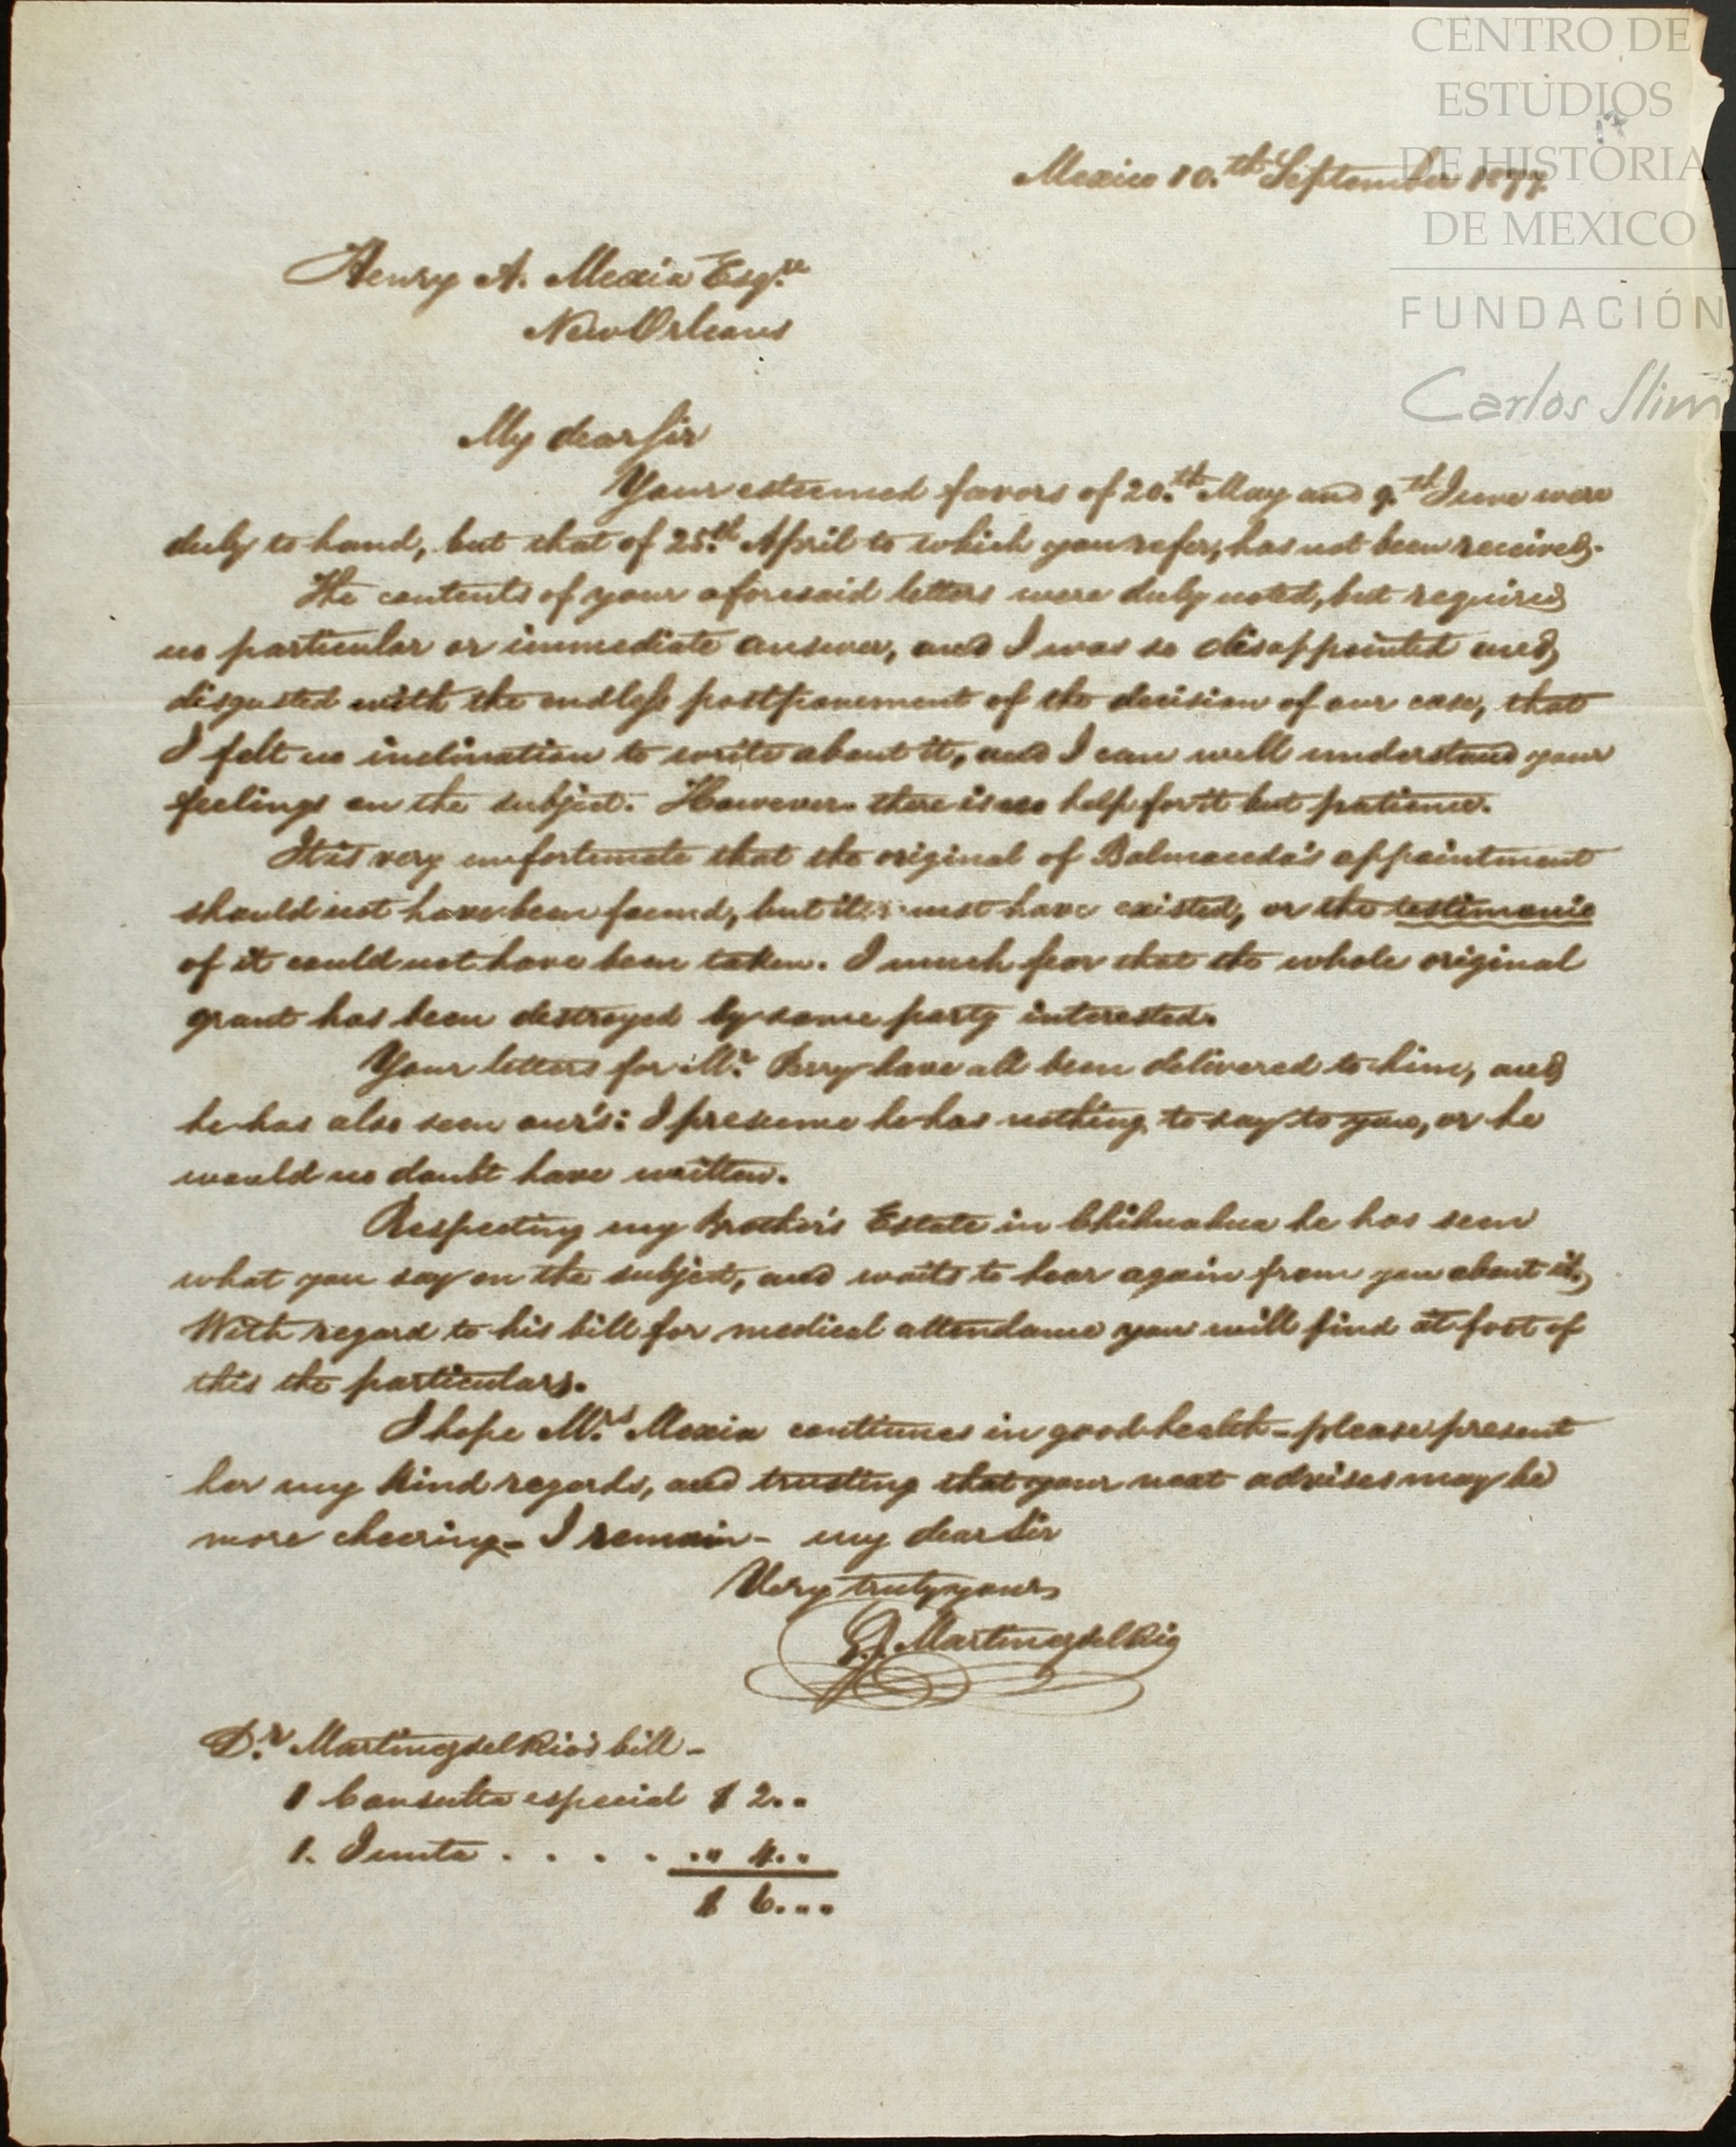 CENTRO DE
ESTUDIOS
DE HISTORIA
DE MEXICO
FUNDACIÓN
Carlos Slim
Mexico 10.th September 1877.
Henry A. Mexia Esq.re
New Orleans
My dear Sir
Your esteemed favors of 20.th May and 9.th June were
duly to hand, but that of 25.th April to which you refer, has not been received.
The contents of your aforesaid letters were duly noted, but required
no particular or immediate answer, and I was so disappointed and
disgusted with the endless postponement of the decision of our case, that
I felt no inclination to write about it, and I can well understand your
feelings on the subject. However there is no help for it but patience.
It is very unfortunate that the original of Balmaceda's appointment
should not have been found, but it must have existed, or the testimonio
of it could not have been taken. I much fear that the whole original
grant has been destroyed by some party interested.
Your letters for M.r Perry have all been delivered to him, and
he has also seen our's: I presume he has nothing to say to you, or he
would no doubt have written.
Respecting my Brother's Estate in Chihuahua he has seen
what you say on the subject, and waits to hear again from you about it,
With regard to his bill for medical attendance you will find at foot of
this the particulars.
I hope M.rs Mexia continues in good health - please present
her my kind regards, and trusting that your next advises may be
more cheering - I remain - my dear Sir
Very truly yours
Martinez del Rio
D.r Martinez del Rio's bill -
1 Consulta especial $ 2..
1. Junta . . . . .. 4..
$ 6...